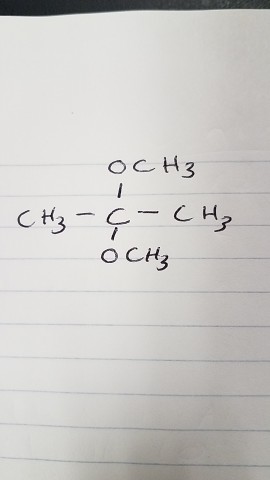 OCH3
CH3 - C - CH3
OCH3